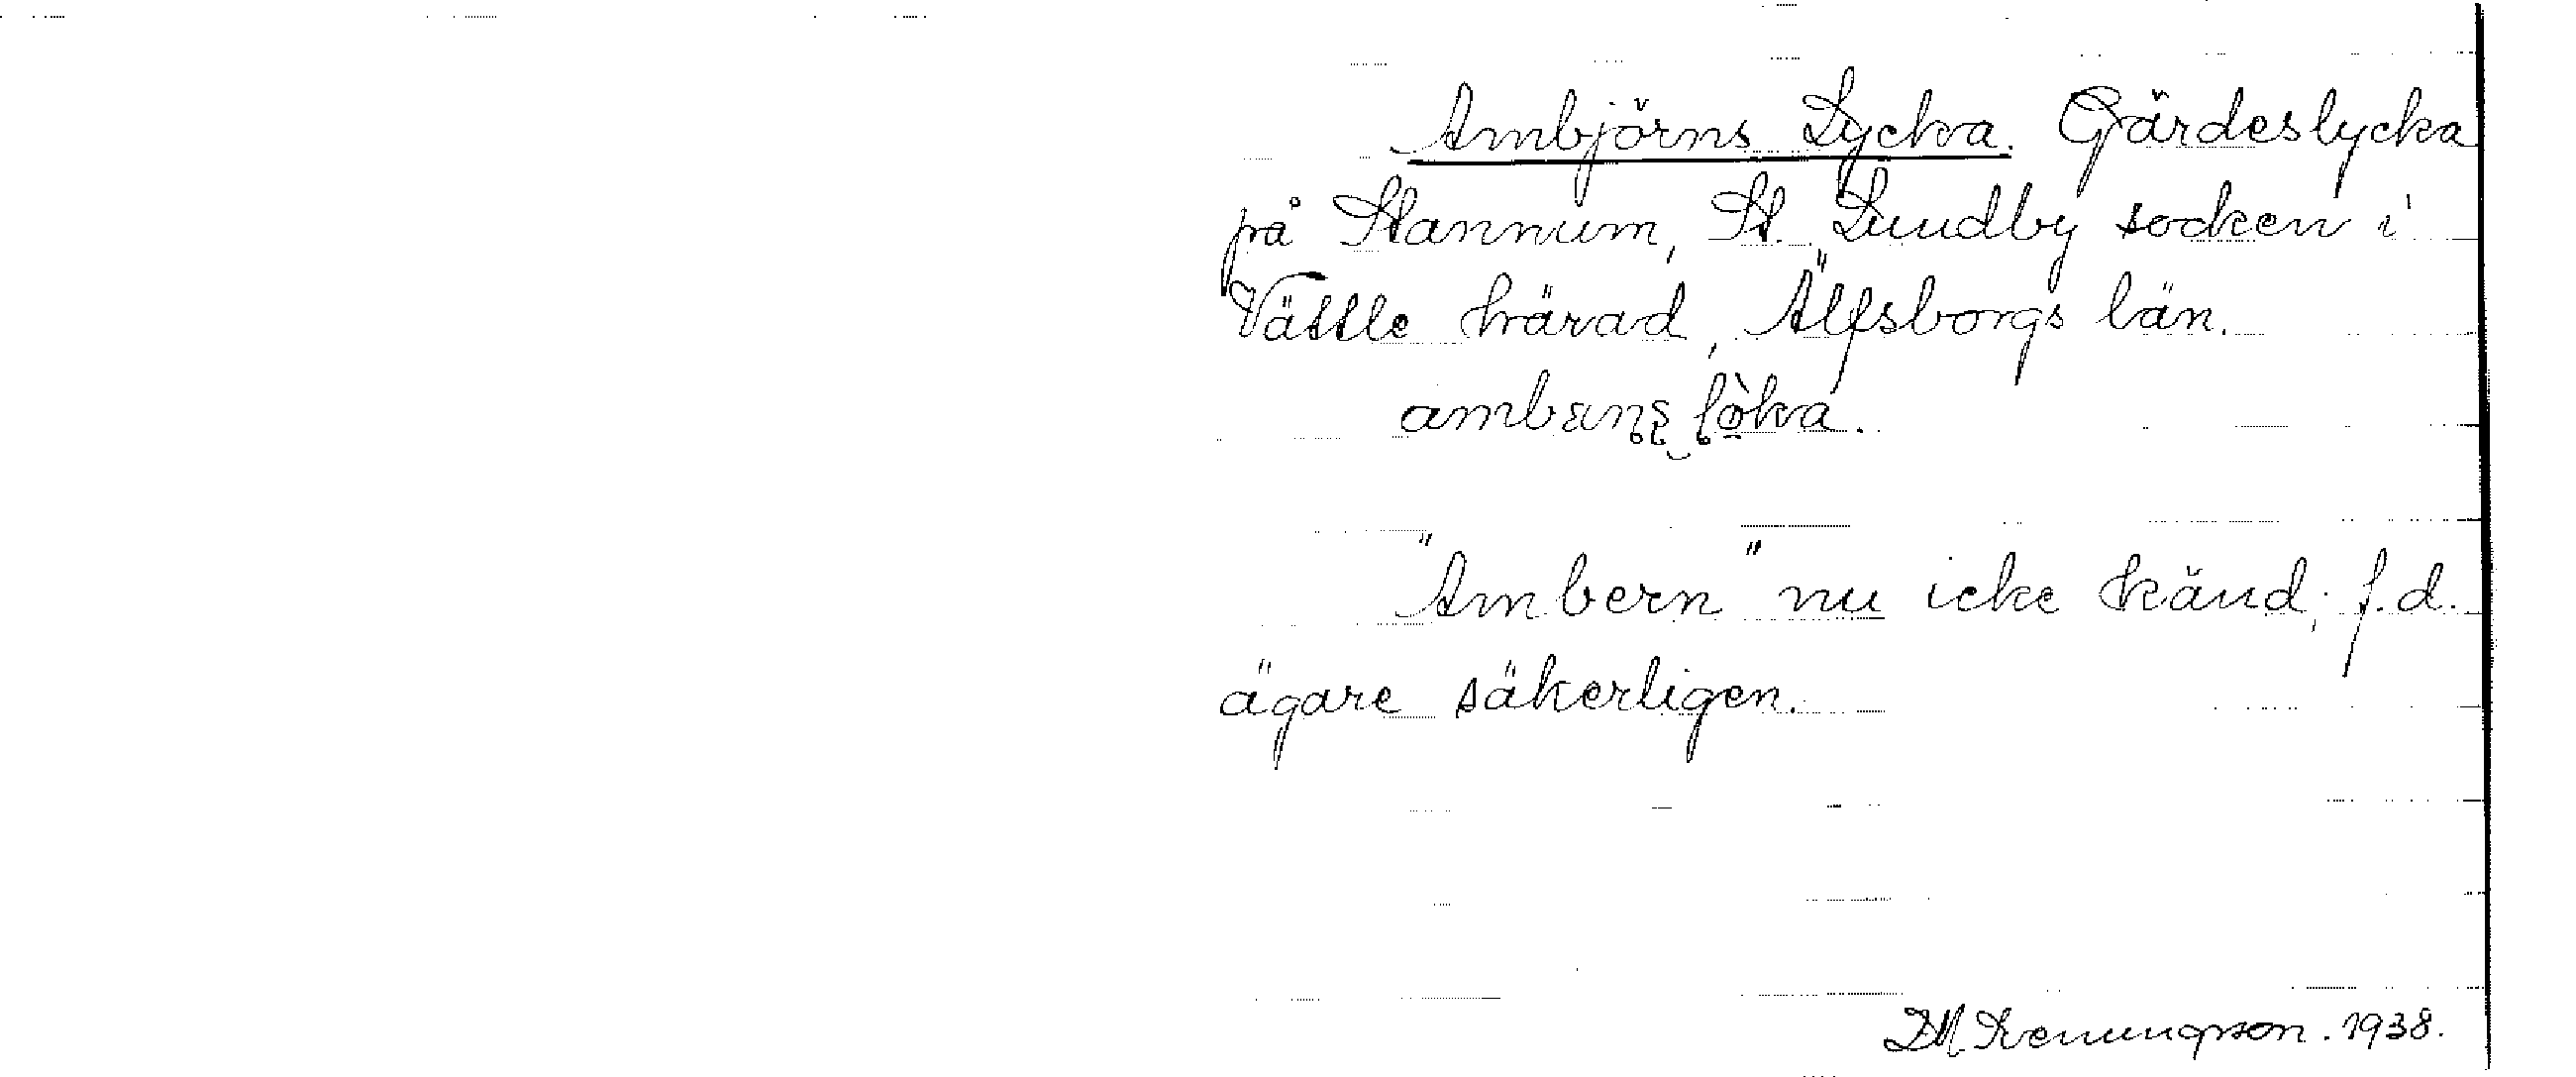 Ambjörns Lycka. Gärdeslycka
på Stannum, St. Lundby socken i
Vättle härad, Älfsborgs län.
"Ambern" nu icke känd; f.d.
ägare säkerligen.
1938.